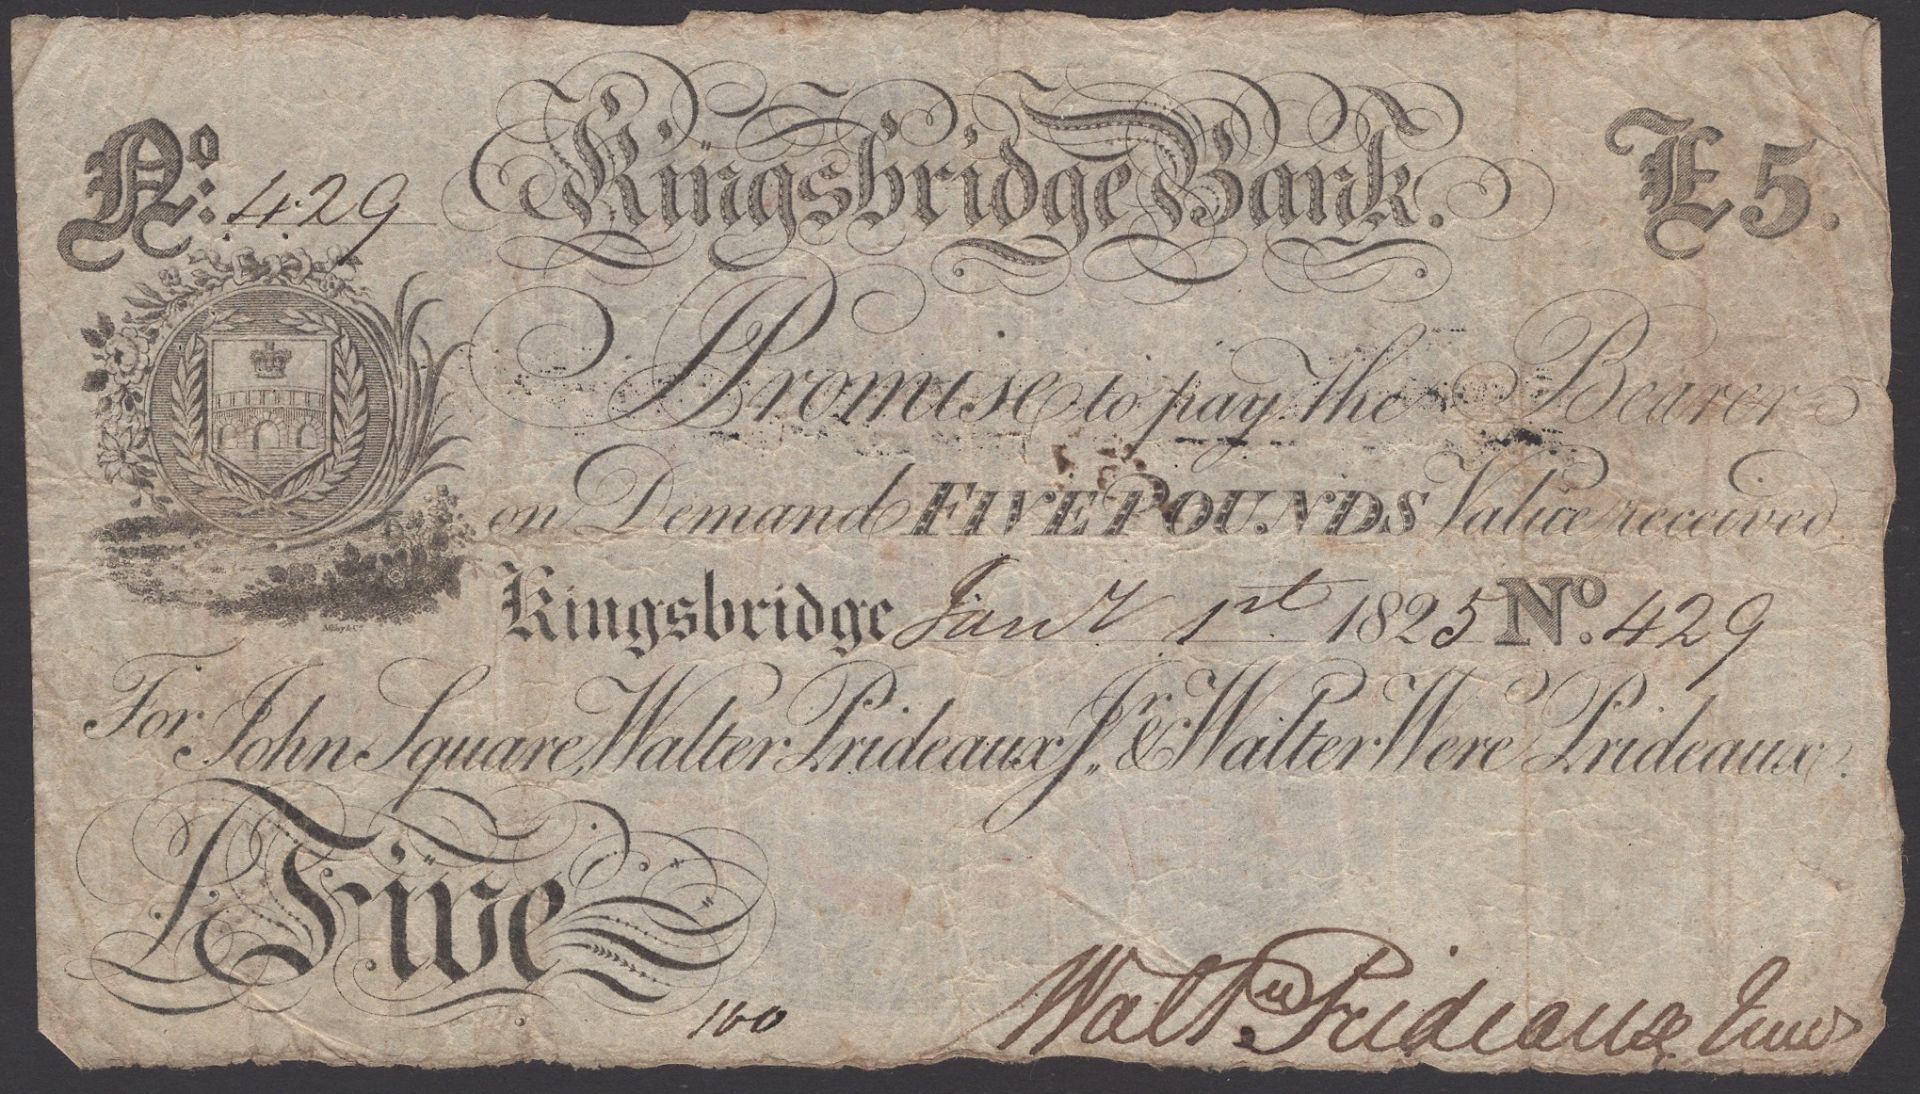 No. 429 Kingsbridge Bank. £5.
I Promise to pay the Bearer
on Demand FIVE POUNDS Value received
Kingsbridge Jany 1st 1825 No. 429
For John Square, Walter Prideaux Jr. & Walter Were Prideaux.
£ Five
160
Waltr Prideaux Junr